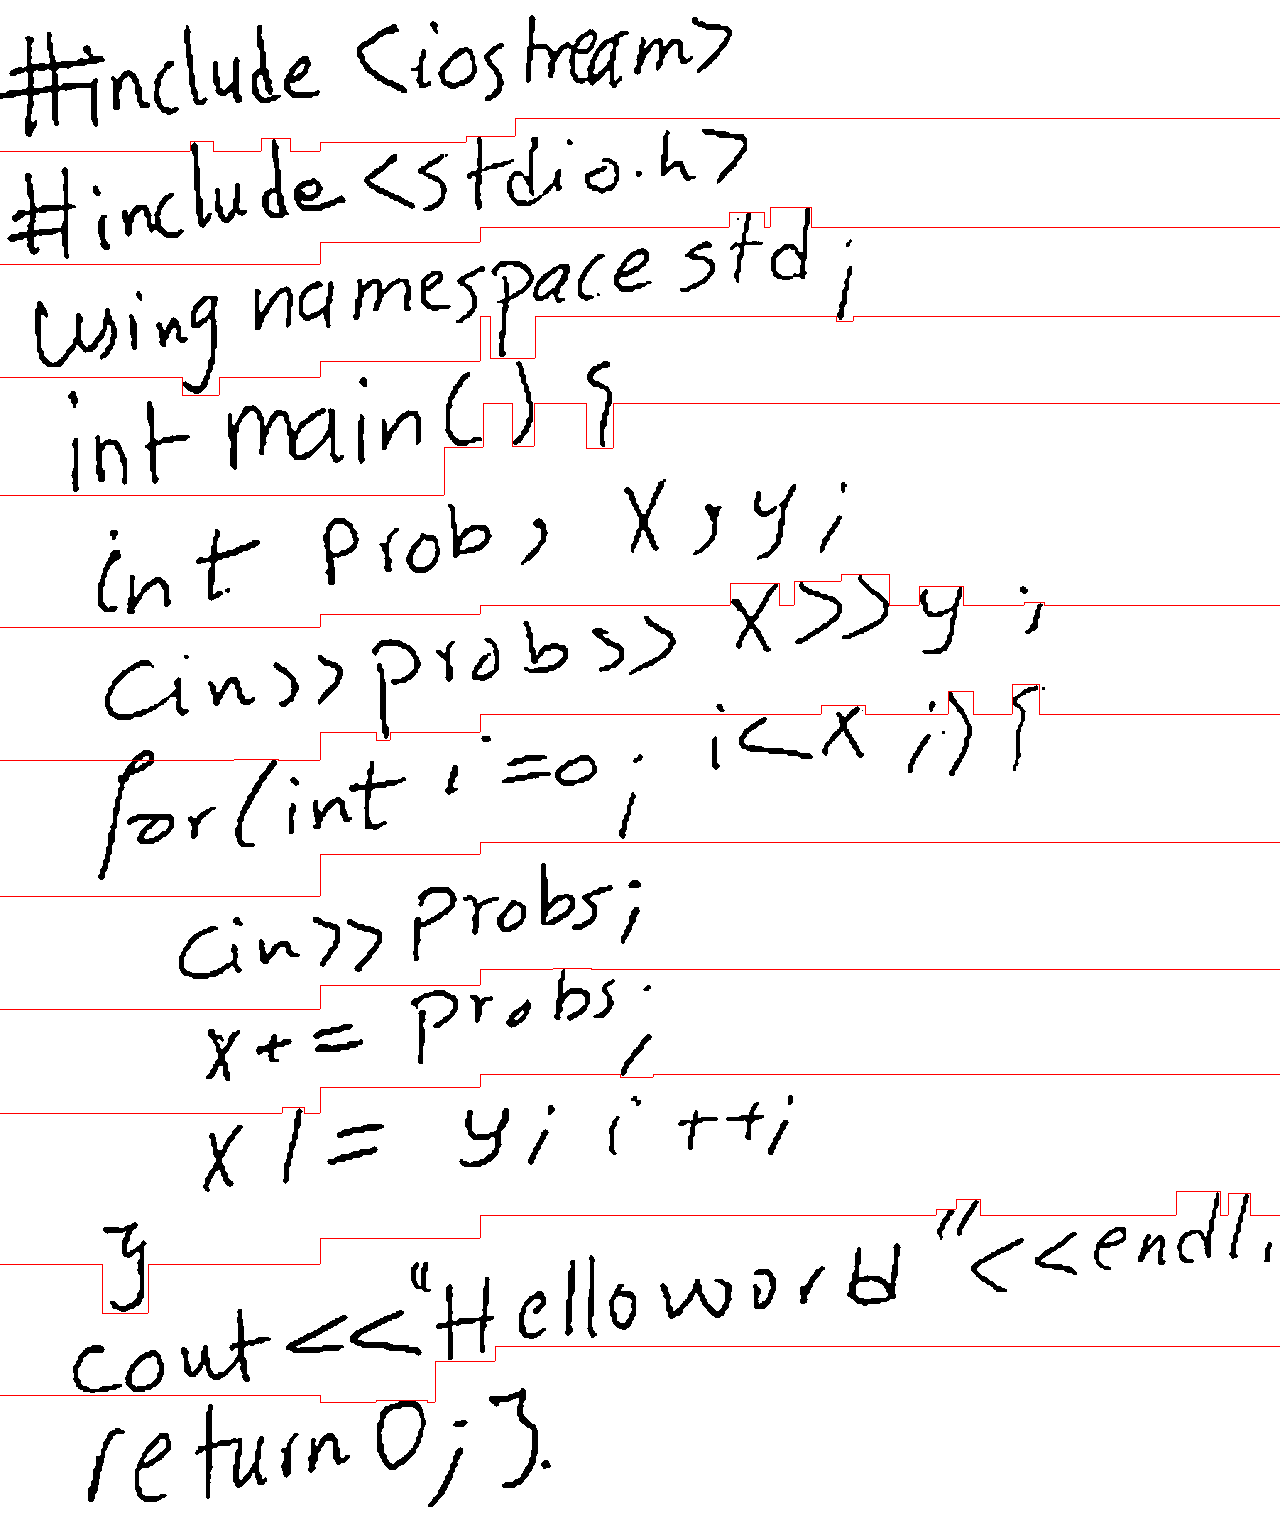 #include <iostream>
#include <stdio.h>
using namespace std;
int main() {
int prob, x, y;
cin>>probs>> x>>y;
for(int i=0; i<x;){
cin>>probs;
x+= probs;
x /= y; i++;
}
cout<<"Helloworld"<<endl;
return 0; }.